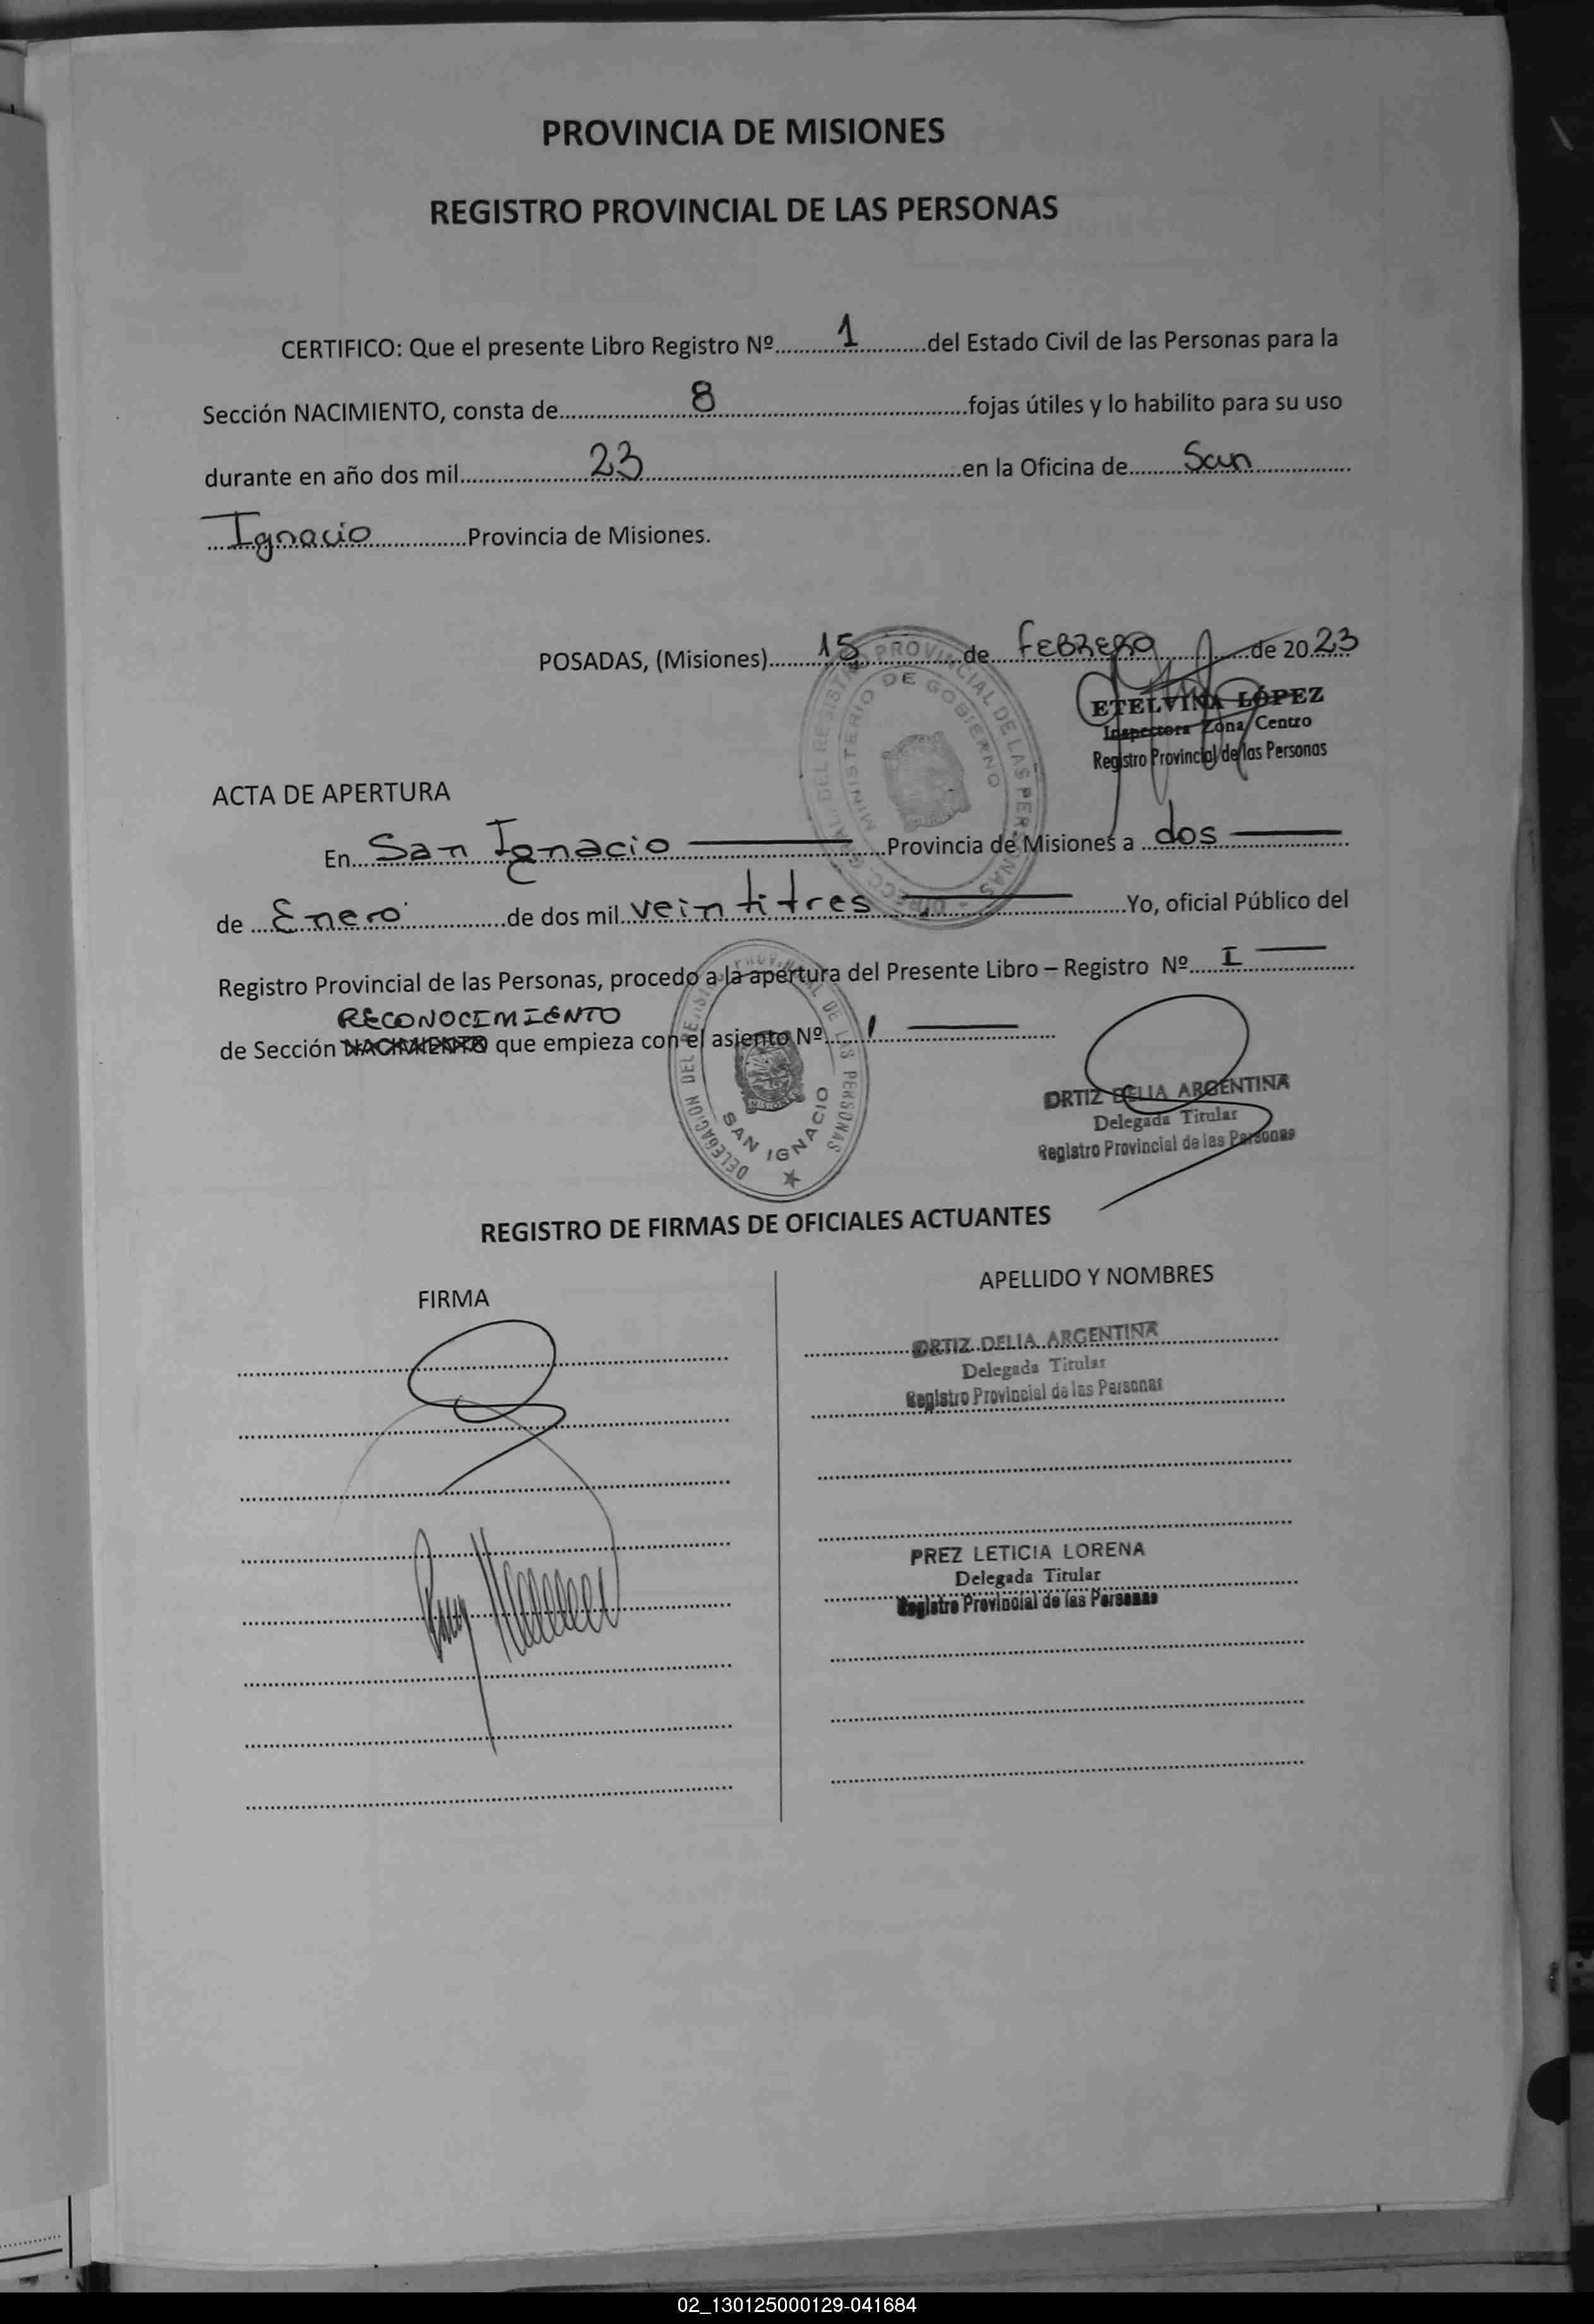 PROVINCIA DE MISIONES
REGISTRO PROVINCIAL DE LAS PERSONAS
CERTIFICO: Que el presente Libro Registro Nº..........1..........del Estado Civil de las Personas para la
Sección NACIMIENTO, consta de..........8..........fojas útiles y lo habilito para su uso
durante en año dos mil..........23..........en la Oficina de..........San..........
Ignacio..........Provincia de Misiones.
POSADAS, (Misiones)..........15..........de..........FEBRERO..........de 20.23
ETELVINA LÓPEZ
Inspectora Zona Centro
Registro Provincial de las Personas
DIRECC. GRAL. DEL REGISTRO PROVINCIAL DE LAS PERSONAS -
MINISTERIO DE GOBIERNO
ACTA DE APERTURA
En...San Ignacio..........Provincia de Misiones a ...dos..........
de ...Enero..........de dos mil...veintitres..........Yo, oficial Público del
Registro Provincial de las Personas, procedo a la apertura del Presente Libro – Registro Nº.....I..........
RECONOCIMIENTO
de Sección NACIMIENTO que empieza con el asiento Nº......1..........
DELEGACION DEL REGISTRO PROVINCIAL DE LAS PERSONAS
MISIONES
SAN IGNACIO
ORTIZ DELIA ARGENTINA
Delegada Titular
Registro Provincial de las Personas
REGISTRO DE FIRMAS DE OFICIALES ACTUANTES
FIRMA
APELLIDO Y NOMBRES
ORTIZ DELIA ARGENTINA
Delegada Titular
Registro Provincial de las Personas
PREZ LETICIA LORENA
Delegada Titular
Registro Provincial de las Personas
02_130125000129-041684